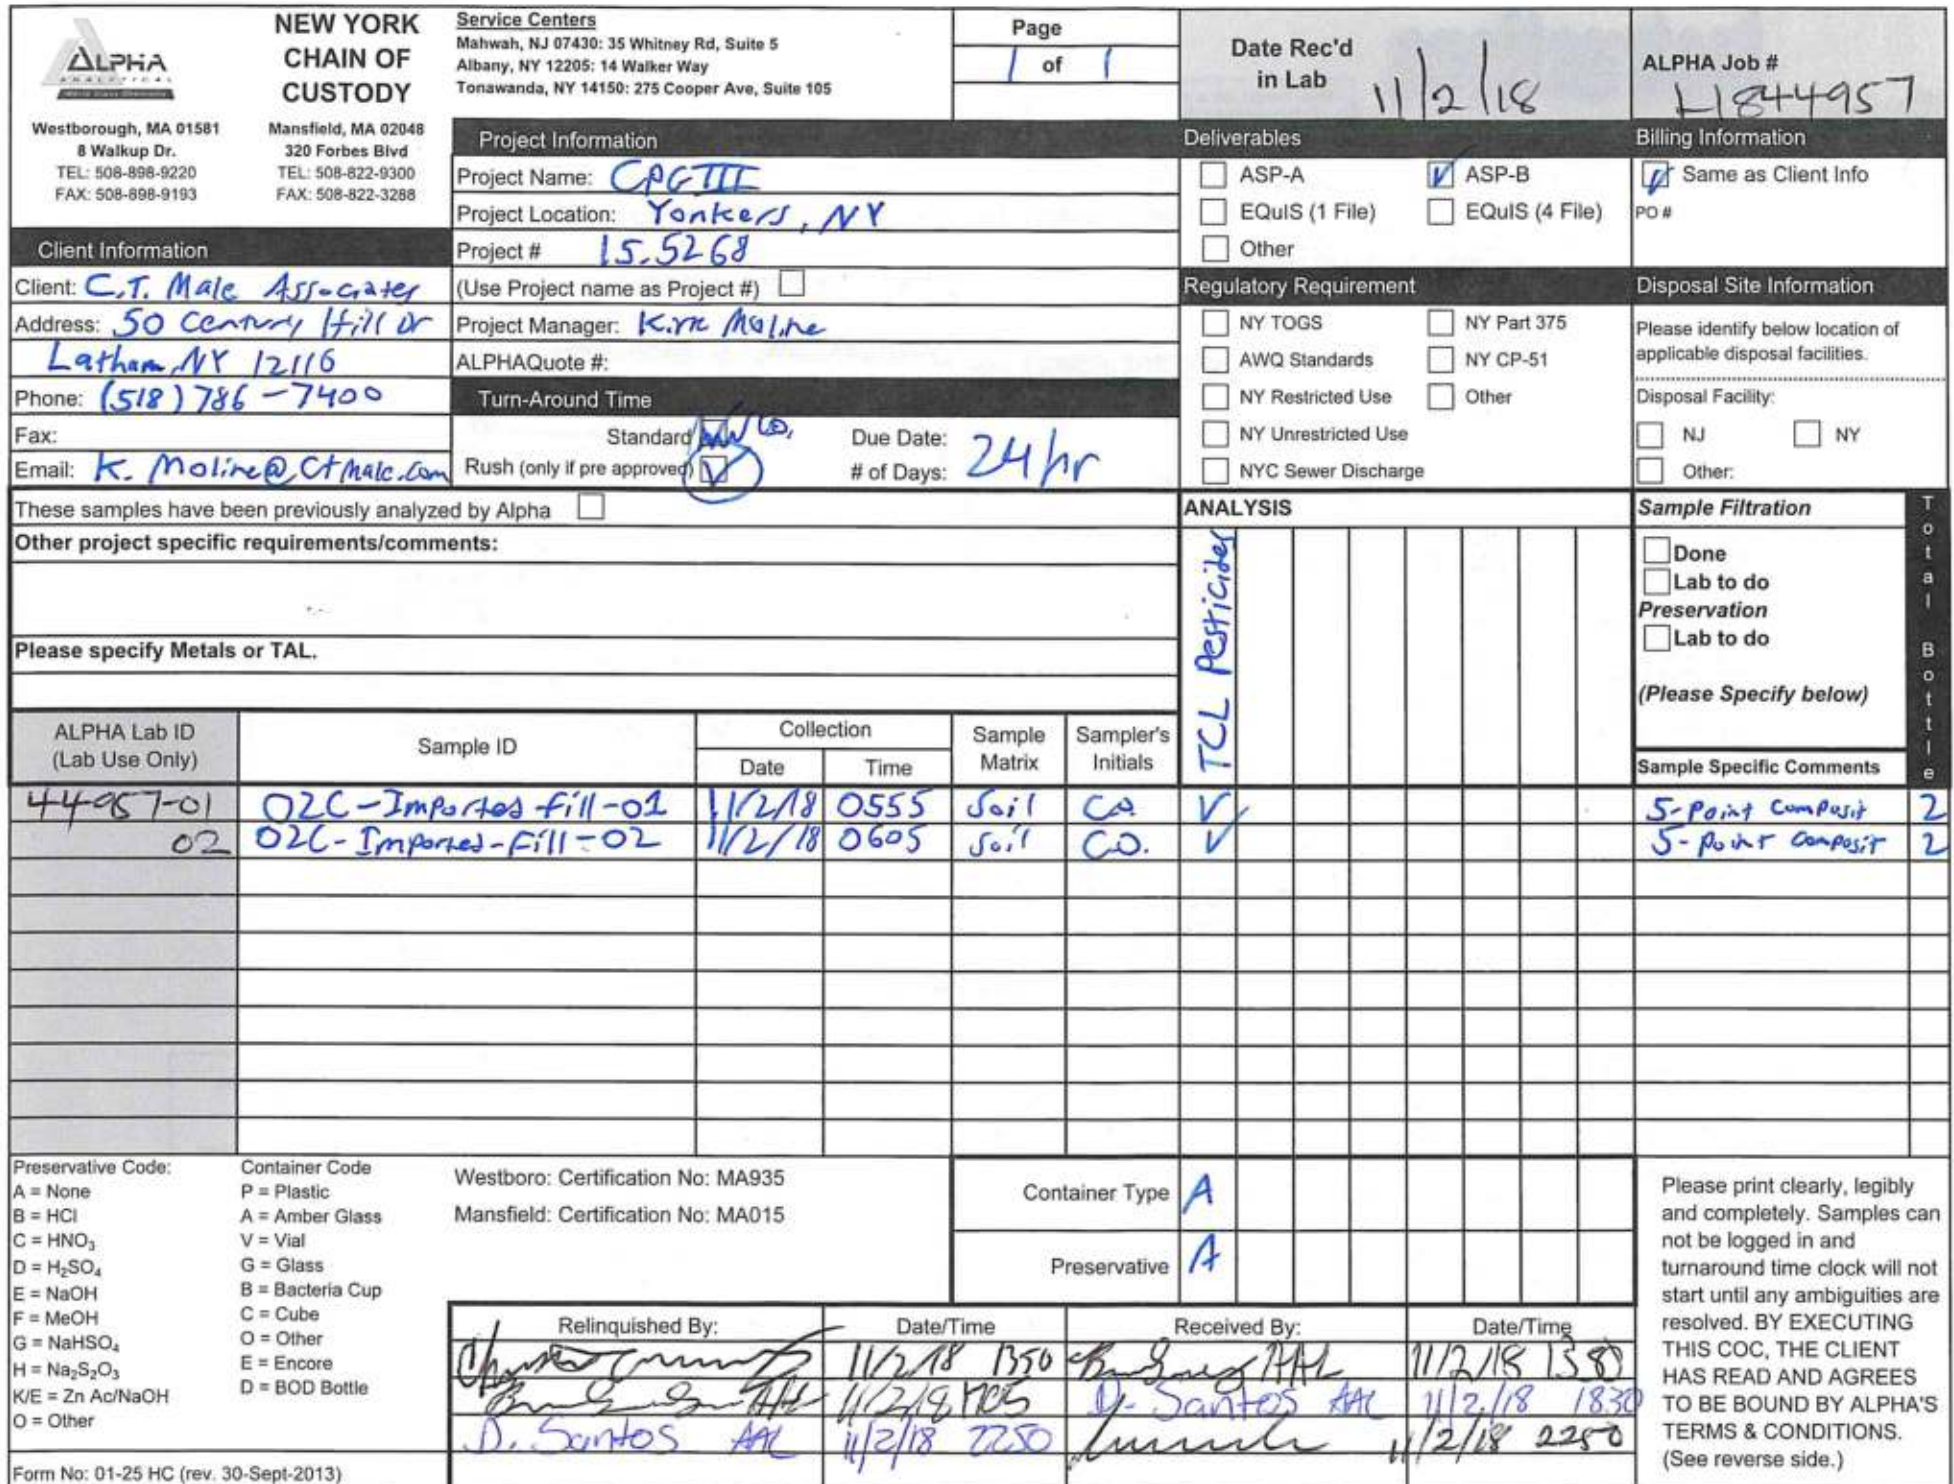 ALPHA
ANALYTICAL
NEW YORK
CHAIN OF
CUSTODY
Westborough, MA 01581
8 Walkup Dr.
TEL: 508-898-9220
FAX: 508-898-9193
Mansfield, MA 02048
320 Forbes Blvd
TEL: 508-822-9300
FAX: 508-822-3288
Service Centers
Mahwah, NJ 07430: 35 Whitney Rd, Suite 5
Albany, NY 12205: 14 Walker Way
Tonawanda, NY 14150: 275 Cooper Ave, Suite 105
Page
1 of 1
Date Rec'd
in Lab 11/2/18
ALPHA Job #
L1844957
Client Information
Client: C.T. Male Associates
Address: 50 Century Hill Dr
Latham, NY 12116
Phone: (518) 786-7400
Fax:
Email: K.Moline@CTMale.com
Project Information
Project Name: CPG III
Project Location: Yonkers, NY
Project # 15.5268
(Use Project name as Project #)
Project Manager: Kirk Moline
ALPHAQuote #:
Turn-Around Time
Standard Due Date:
Rush (only if pre approved) # of Days: 24 hr
Deliverables
ASP-A ASP-B
EQuIS (1 File) EQuIS (4 File)
Other
Regulatory Requirement
NY TOGS NY Part 375
AWQ Standards NY CP-51
NY Restricted Use Other
NY Unrestricted Use
NYC Sewer Discharge
Billing Information
Same as Client Info
PO #
Disposal Site Information
Please identify below location of
applicable disposal facilities.
Disposal Facility:
NJ NY
Other:
These samples have been previously analyzed by Alpha
Other project specific requirements/comments:
Please specify Metals or TAL.
ANALYSIS
TCL Pesticides
Sample Filtration
Done
Lab to do
Preservation
Lab to do
(Please Specify below)
Total Bottle
ALPHA Lab ID
(Lab Use Only)
Sample ID
Collection
Date Time
Sample
Matrix
Sampler's
Initials
Sample Specific Comments
44957-01 02C-Imported-fill-01 11/2/18 0555 Soil C.O. 5-Point Composit 2
02 02C-Imported-Fill-02 11/2/18 0605 Soil C.O. 5-Point Composit 2
Preservative Code:
A = None
B = HCl
C = HNO₃
D = H₂SO₄
E = NaOH
F = MeOH
G = NaHSO₄
H = Na₂S₂O₃
K/E = Zn Ac/NaOH
O = Other
Container Code
P = Plastic
A = Amber Glass
V = Vial
G = Glass
B = Bacteria Cup
C = Cube
O = Other
E = Encore
D = BOD Bottle
Westboro: Certification No: MA935
Mansfield: Certification No: MA015
Container Type A
Preservative A
Relinquished By: Date/Time Received By: Date/Time
11/2/18 1350 AAL 11/2/18 1350
AAL 11/2/18 D. Santos AAL 11/2/18 1830
D. Santos AAL 11/2/18 2250 11/2/18 2250
Please print clearly, legibly
and completely. Samples can
not be logged in and
turnaround time clock will not
start until any ambiguities are
resolved. BY EXECUTING
THIS COC, THE CLIENT
HAS READ AND AGREES
TO BE BOUND BY ALPHA'S
TERMS & CONDITIONS.
(See reverse side.)
Form No: 01-25 HC (rev. 30-Sept-2013)